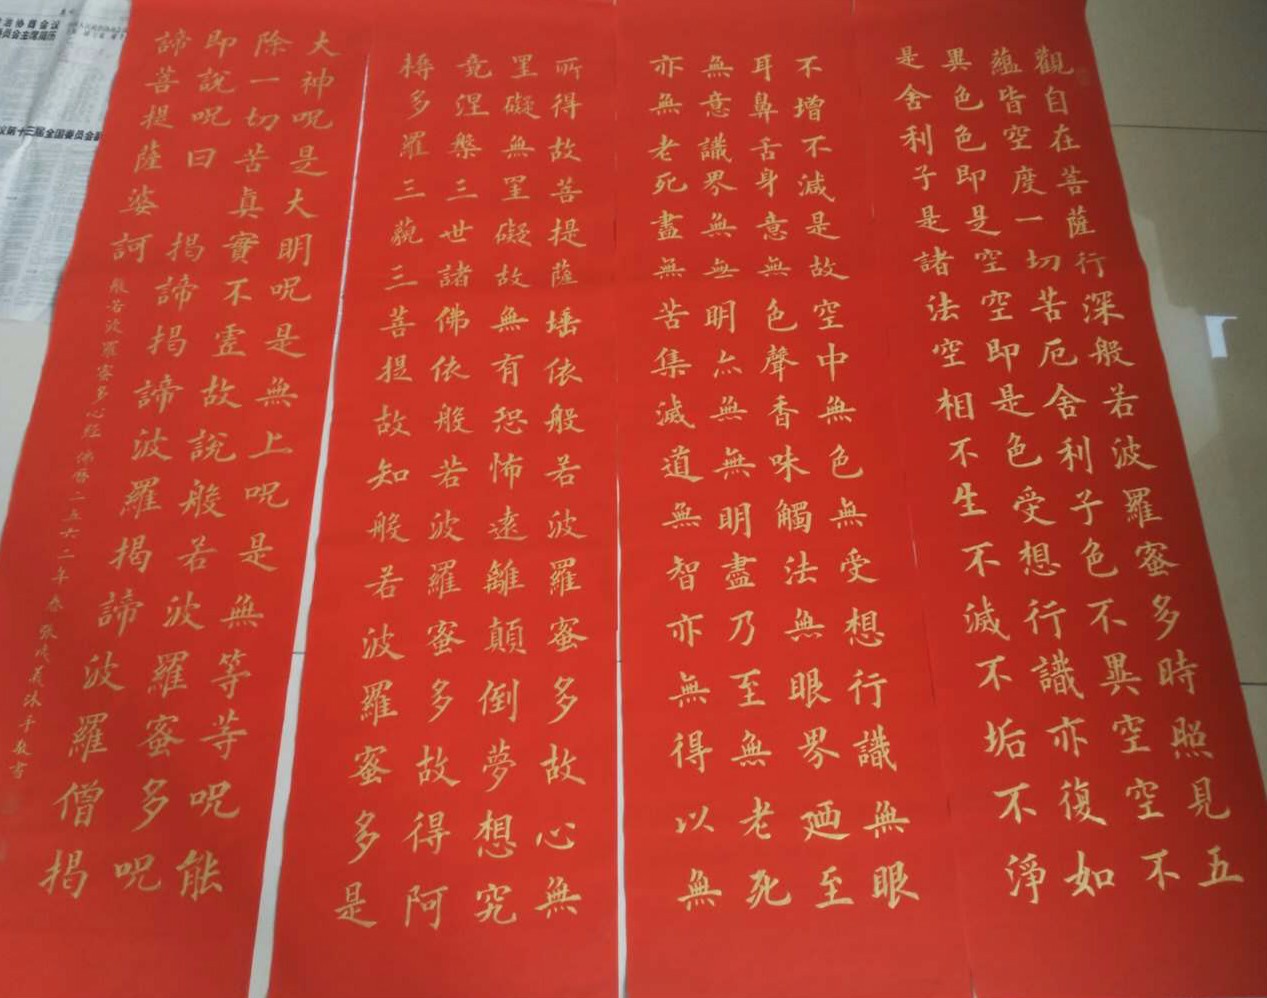 觀自在菩薩行深般若波羅蜜多時照見五
蘊皆空度一切苦厄舍利子色不異空空不
異色色即是空空即是色受想行識亦復如
是舍利子是諸法空相不生不滅不垢不淨
不增不減是故空中無色無受想行識無眼
耳鼻舌身意無色聲香味觸法無眼界廼至
無意識界無無明亦無無明盡乃至無老死
亦無老死盡無苦集滅道無智亦無得以無
所得故菩提薩埵依般若波羅蜜多故心無
罣礙無罣礙故無有恐怖遠離顛倒夢想究
竟涅槃三世諸佛依般若波羅蜜多故得阿
耨多羅三藐三菩提故知般若波羅蜜多是
大神呪是大明呪是無上呪是無等等呪能
除一切苦真實不虛故說般若波羅蜜多呪
即說呪曰 揭諦揭諦波羅揭諦波羅僧揭
諦菩提薩婆訶
般若波羅蜜多心經 佛曆二五六二年春張義沐手敬書
治协商会议
委员会主席简历
议第十三届全国委员会副